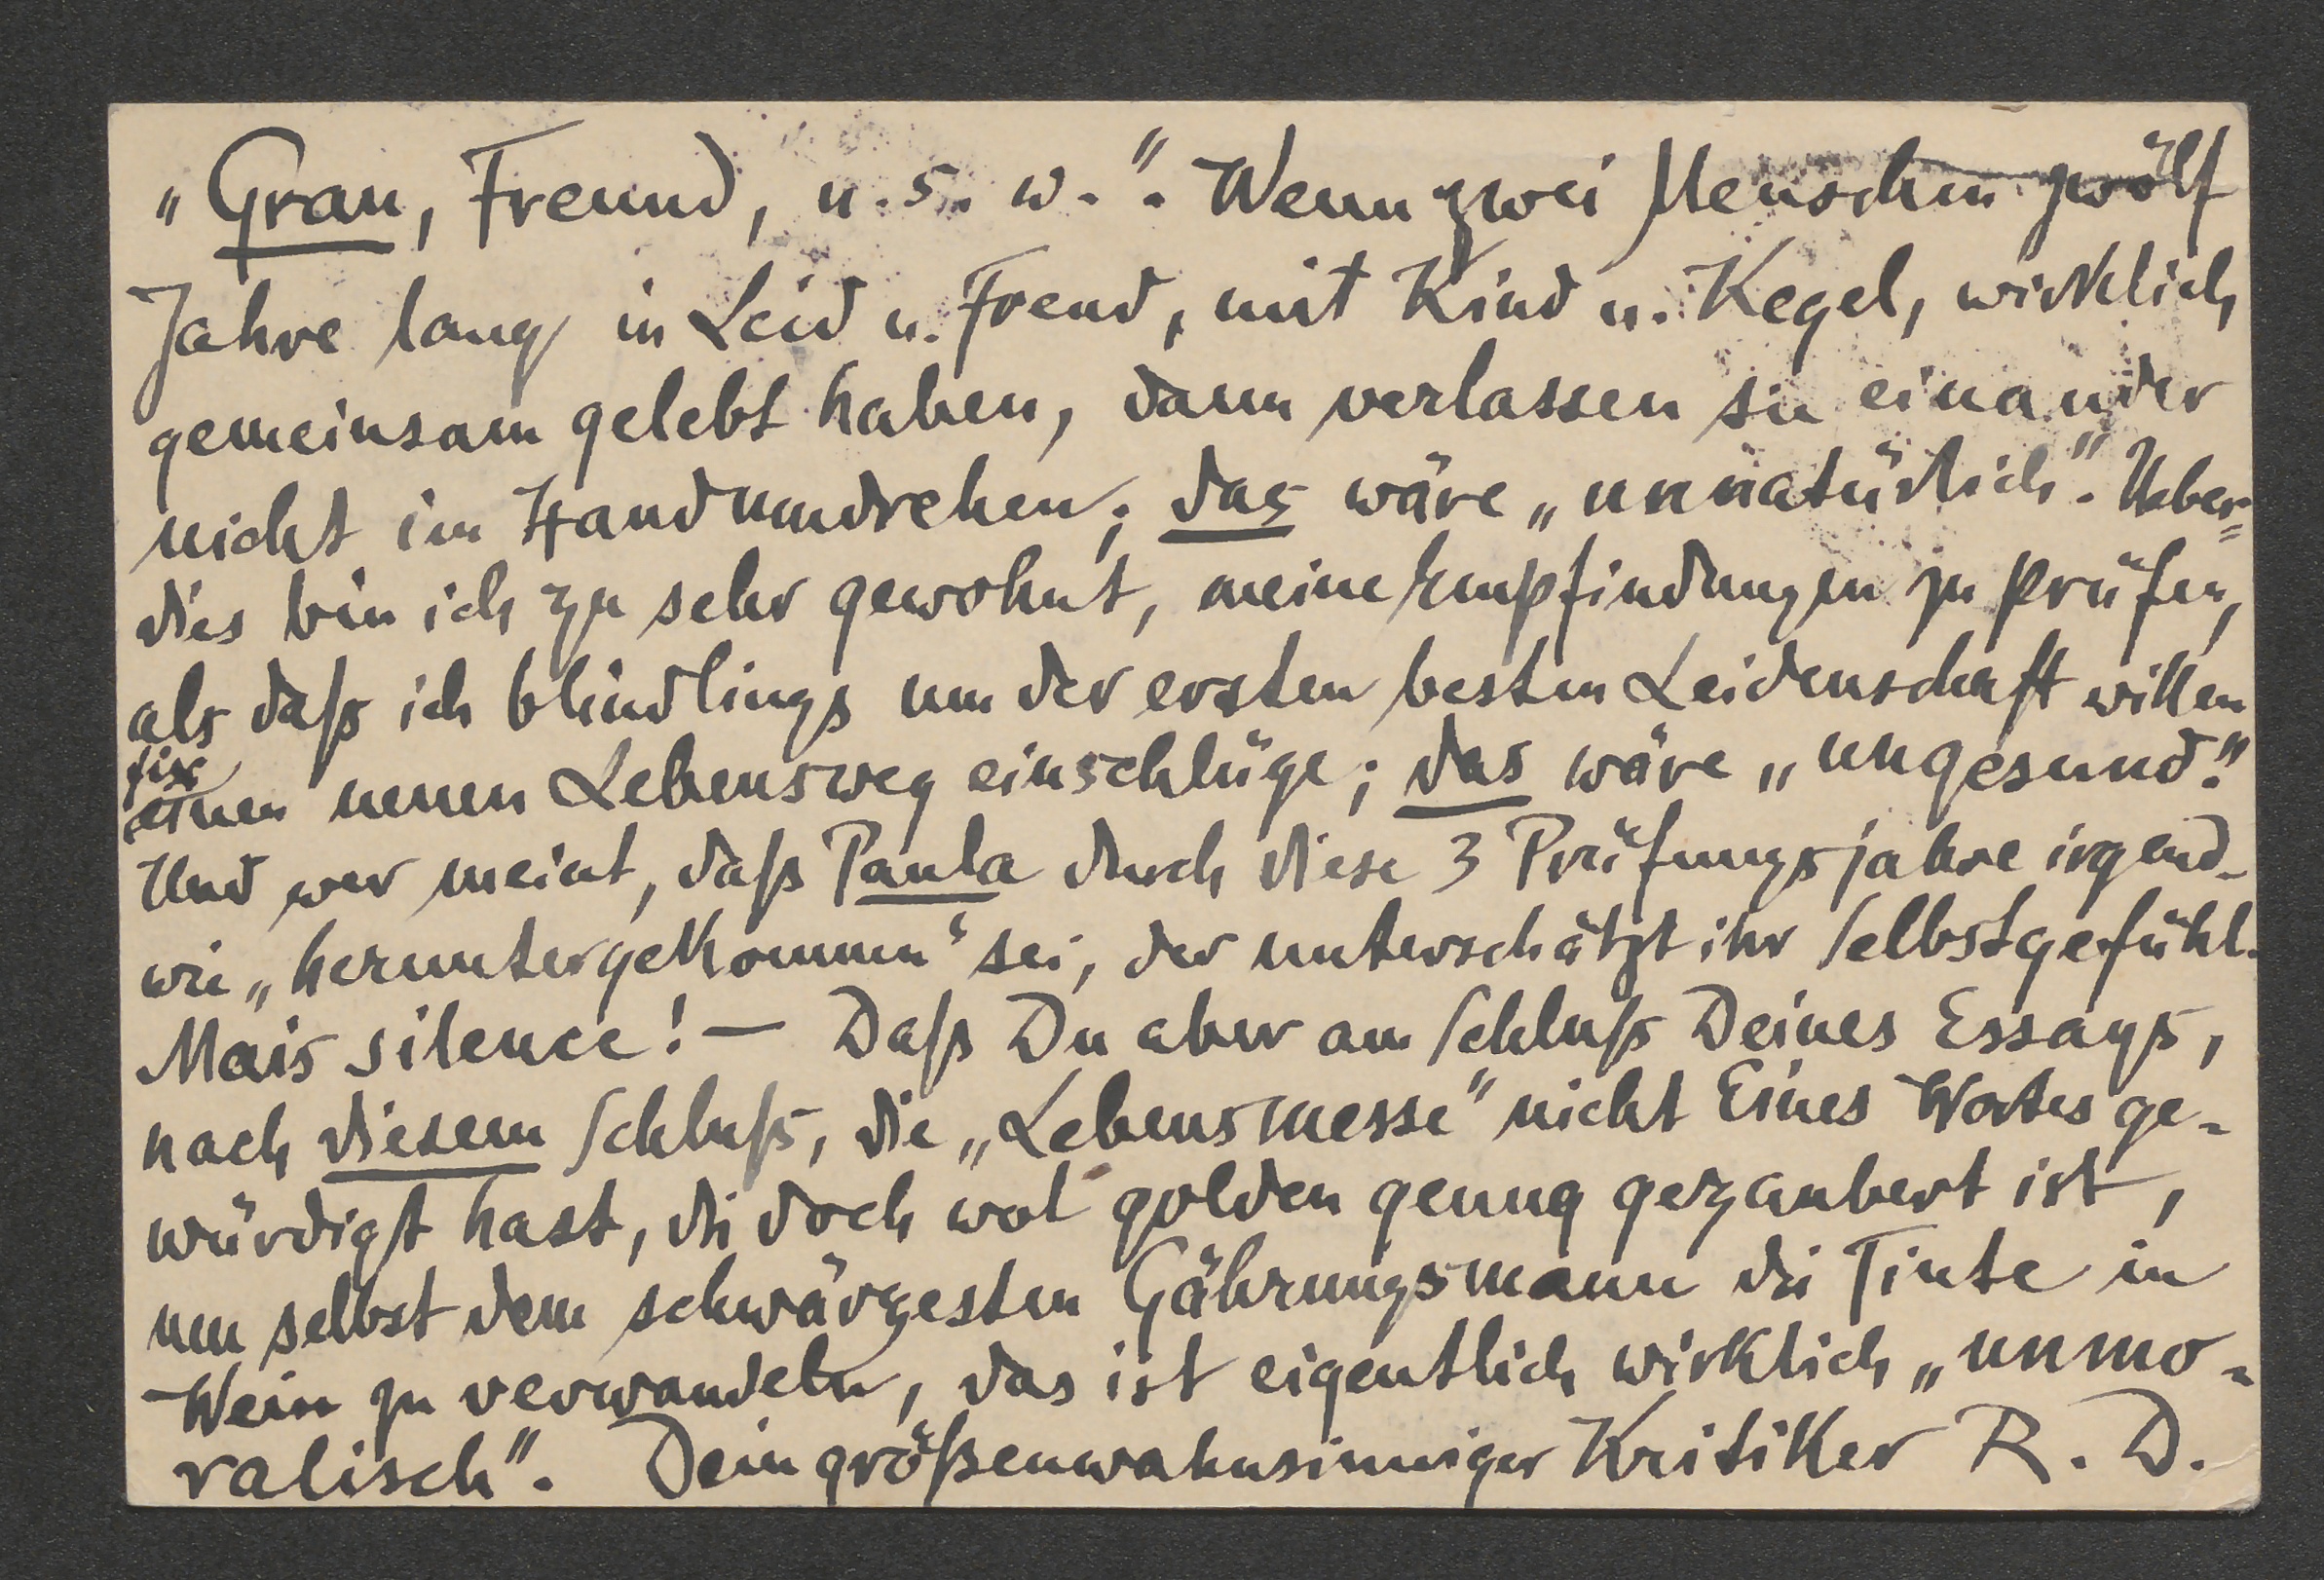 „Grau, Freund, u. s. w.". Wenn zwei Menschen zwölf
Jahre lang in Leid u. Freud, mit Kind u. Kegel, wirklich
gemeinsam gelebt haben, dann verlassen sie einander
nicht im Handumdrehen; das wäre „unnatürlich". Ueber=
dies bin ich zu sehr gewohnt, meine Empfindungen zu prüfen,
als daß ich blindlings um der ersten besten Leidenschaft willen
fix
einen neuen Lebensweg einschlüge; das wäre „ungesund".
Und wer meint, daß Paula durch diese 3 Prüfungsjahre irgend-
wie „heruntergekommen" sei, der unterschätzt ihr Selbstgefühl.
Mais silence! — Daß Du aber am Schluß Deines Essays,
nach diesem Schluß, die „Lebensmesse" nicht Eines Wortes ge-
würdigt hast, die doch wol golden genug gezaubert ist,
um selbst dem schwärzesten Gährungsmann die Tinte in
Wein zu verwandeln, das ist eigentlich wirklich „unmo-
ralisch". Dein größenwahnsinniger Kritiker R. D.